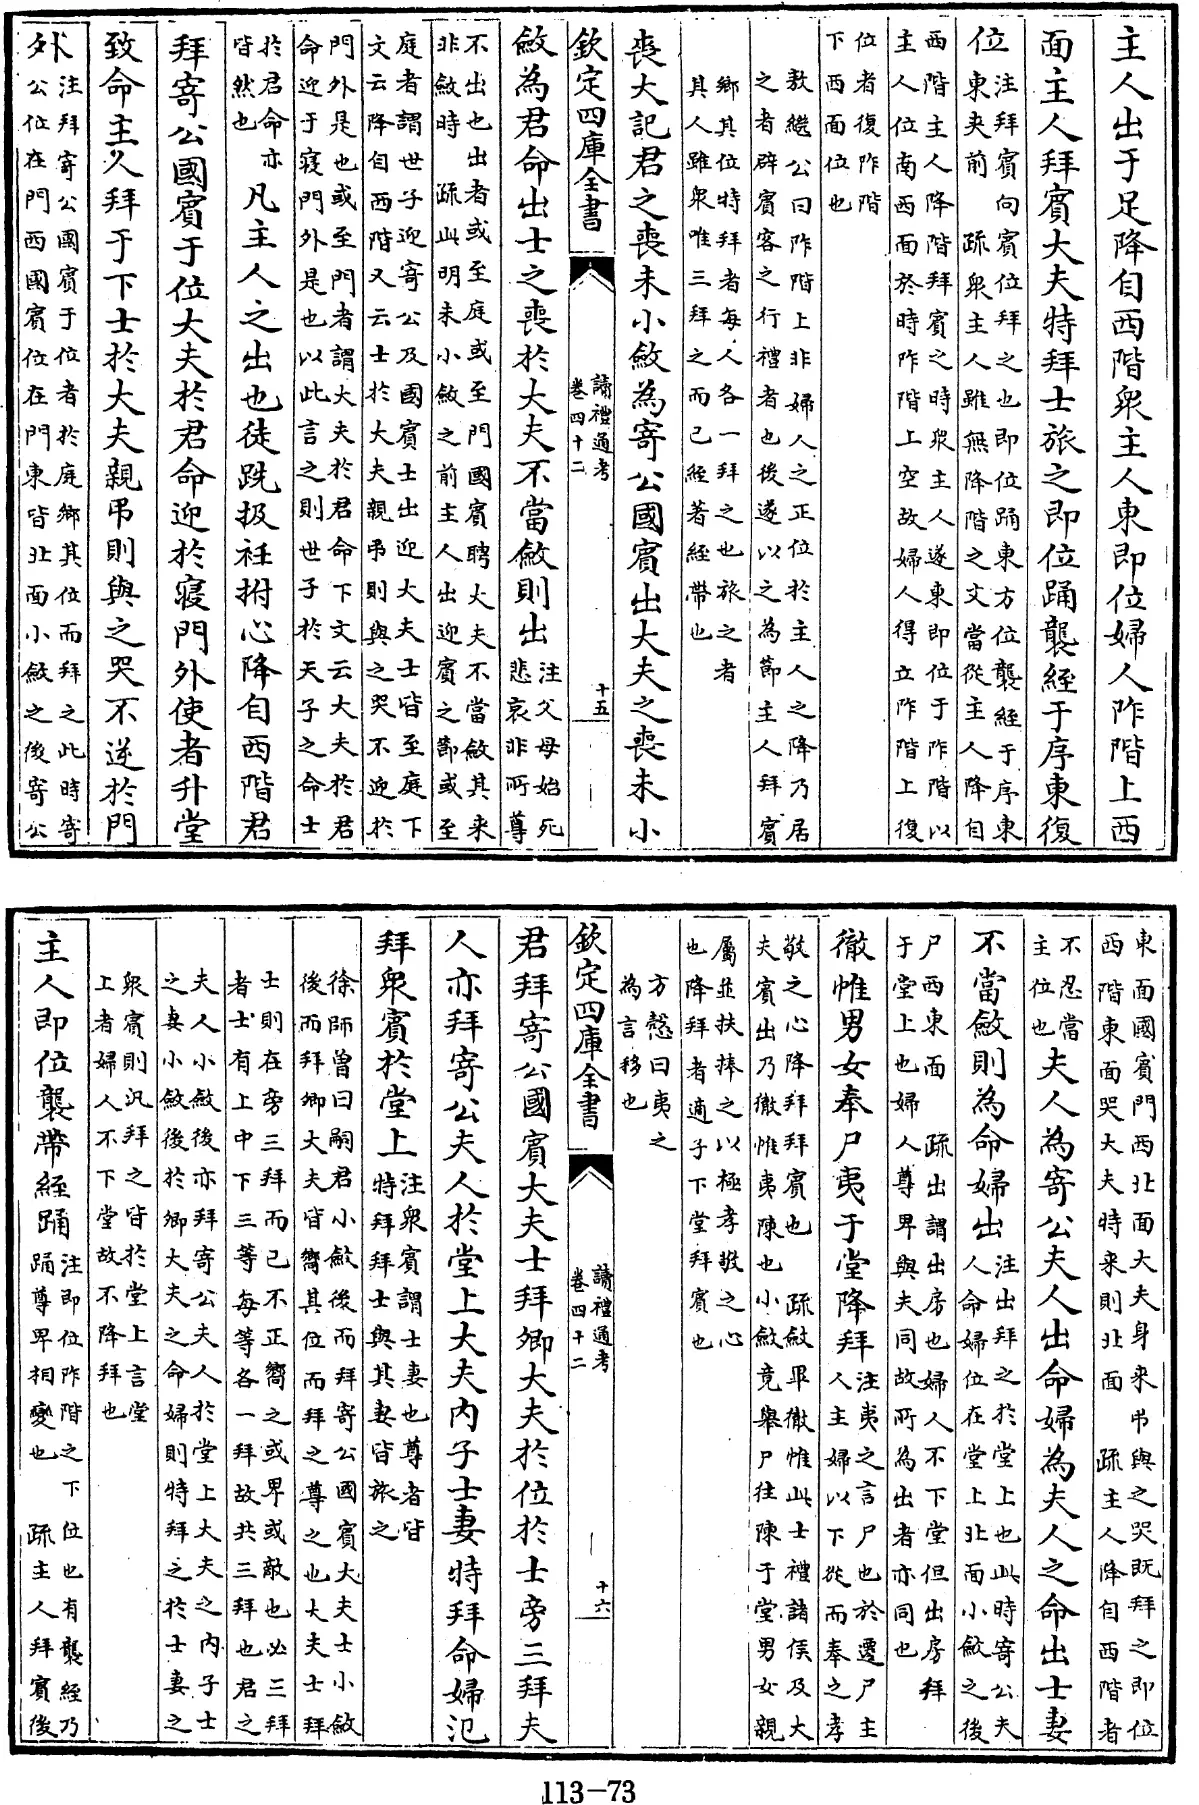 主人出于足降自西階衆主人東即位婦人阼階上西
面主人拜賓大夫特拜士旅之即位踊襲絰于序東復
位
注拜賓向賓位拜之也即位踊東方位襲絰于序東
東夾前　疏衆主人雖無降階之文當從主人降自
西階主人降階拜賓之時衆主人遂東即位于阼階以
主人位南西面於時阼階上空故婦人得立阼階上復
位者復阼階
下西面位也
敖繼公曰阼階上非婦人之正位於主人之降乃居
之者辟賓客之行禮者也後遂以之為節主人拜賓
鄉其位特拜者每人各一拜之也旅之者
其人雖衆唯三拜之而已絰著絰帶也
喪大記君之喪未小斂為寄公國賓出大夫之喪未小
欽定四庫全書
讀禮通考
卷四十二
十五
斂為君命出士之喪於大夫不當斂則出
注父母始死
悲哀非所尊
不出也出者或至庭或至門國賓聘大夫不當斂其來
非斂時　疏此明未小斂之前主人出迎賓之節或至
庭者謂世子迎寄公及國賓士出迎大夫士皆至庭下
文云降自西階又云士於大夫親弔則與之哭不迎於
門外是也或至門者謂大夫於君命下文云大夫於君
命迎于寢門外是也以此言之則世子於天子之命士
於君命亦
皆然也
凡主人之出也徒跣扱衽拊心降自西階君
拜寄公國賓于位大夫於君命迎於寢門外使者升堂
致命主人拜于下士於大夫親弔則與之哭不逆於門
外
注拜寄公國賓于位者於庭鄉其位而拜之此時寄
公位在門西國賓位在門東皆北面小斂之後寄公
東面國賓門西北面大夫身來弔與之哭既拜之即位
西階東面哭大夫特來則北面　疏主人降自西階者
不忍當
主位也
夫人為寄公夫人出命婦為夫人之命出士妻
不當斂則為命婦出
注出拜之於堂上也此時寄公夫
人命婦位在堂上北面小斂之後
尸西東面　疏出謂出房也婦人不下堂但出房拜
于堂上也婦人尊卑與夫同故所為出者亦同也
徹帷男女奉尸夷于堂降拜
注夷之言尸也於遷尸主
人主婦以下從而奉之孝
敬之心降拜拜賓也　疏斂畢徹帷此士禮諸侯及大
夫賓出乃徹帷夷陳也小斂竟舉尸往陳于堂男女親
屬並扶捧之以極孝敬之心
也降拜者適子下堂拜賓也
方慤曰夷之
為言移也
欽定四庫全書
讀禮通考
卷四十二
十六
君拜寄公國賓大夫士拜卿大夫於位於士旁三拜夫
人亦拜寄公夫人於堂上大夫內子士妻特拜命婦氾
拜衆賓於堂上
注衆賓謂士妻也尊者皆
特拜拜士與其妻皆旅之
徐師曾曰嗣君小斂後而拜寄公國賓大夫士小斂
後而拜卿大夫皆嚮其位而拜之尊之也大夫士拜
士則在旁三拜而已不正嚮之或卑或敵也必三拜
者士有上中下三等每等各一拜故共三拜也君之
夫人小斂後亦拜寄公夫人於堂上大夫之內子士
之妻小斂後於卿大夫之命婦則特拜之於士妻之
衆賓則汎拜之皆於堂上言堂
上者婦人不下堂故不降拜也
主人即位襲帶絰踊
注即位阼階之下位也有襲絰乃
踊尊卑相變也　疏主人拜賓後
113-73